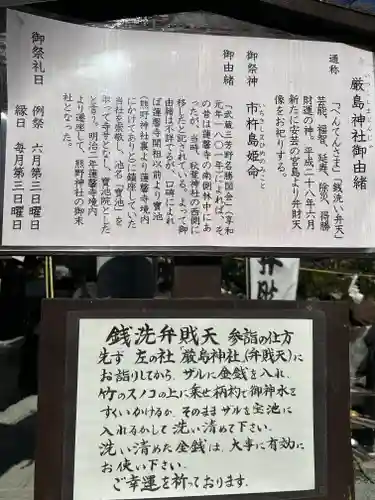 厳島神社御由緒
いつくしまじんじゃ
通称 「べんてんさま」「銭洗い弁天」
芸能、福智、延寿、除災、得勝
財運の神。平成二十八年六月
新たに安芸の宮島より弁財天
像をお祀りする。
御祭神 市杵島姫命
いちきしまひめのみこと
御由緒 「武蔵三芳野名勝図会」(享和
元年一八〇一年)によれば、そ
の昔は蓮馨寺の南側林中にあ
ったが、当時、秋葉神社の西側に
移したと記されている。よって御
由緒は不詳であるが、口碑によれ
ば蓮馨寺開祖以前より寶池
(熊野神社裏より蓮馨寺境内
にかけてあり)に鎮座していた
当社を崇敬し、池名「寶池」を
取って寺号となし、寶池院とした
と言う。明治二年蓮馨寺境内
より遷座して、熊野神社の御末
社となった。
御祭礼日 例祭 六月第三日曜日
縁日 毎月第三日曜日
銭洗弁財天 参詣の仕方
先ず 左の社「厳島神社(弁財天)に
お詣りしてから、ザルに金銭を入れ、
竹のスノコの上に乗せ柄杓で御神水を
すくいかけるか、そのままザルを宝池に
入れるかして洗い清めて下さい。
洗い清めた金銭は、大事に有効に
お使い下さい。
ご幸運を祈っております。
弁財